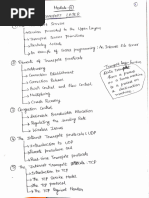 Module-4
TRANSPORT LAYER
① The Transport Service
→ Services provided to the Upper Layers
→ Transport Service Primitives
→ Berkeley Sockets
→ An Example of Socket programming: An Internet File Server
② Elements of Transport protocols
→ Addressing
→ Connection Establishment
→ Connection Release
→ Error Control and Flow Control
→ Multiplexing
→ Crash Recovery
③ Congestion Control
→ Desirable Bandwidth Allocation
→ Regulating the Sending Rate
→ Wireless Issues
④ The Internet Transport Protocols: UDP
→ Introduction to UDP
→ Remote procedure Call
→ Real-time Transport Protocols
⑤ The Internet Transport Protocols: TCP
→ Introduction to TCP
→ The TCP Service Model
→ The TCP protocol
→ The TCP Segment Header
Transport Layer Services
from a process on
Source machine to a
process on
destination machine